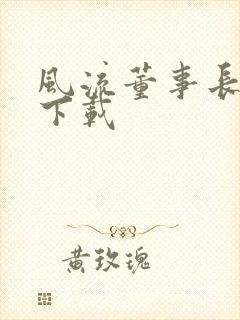 風流董事長
下載
黃玫瑰